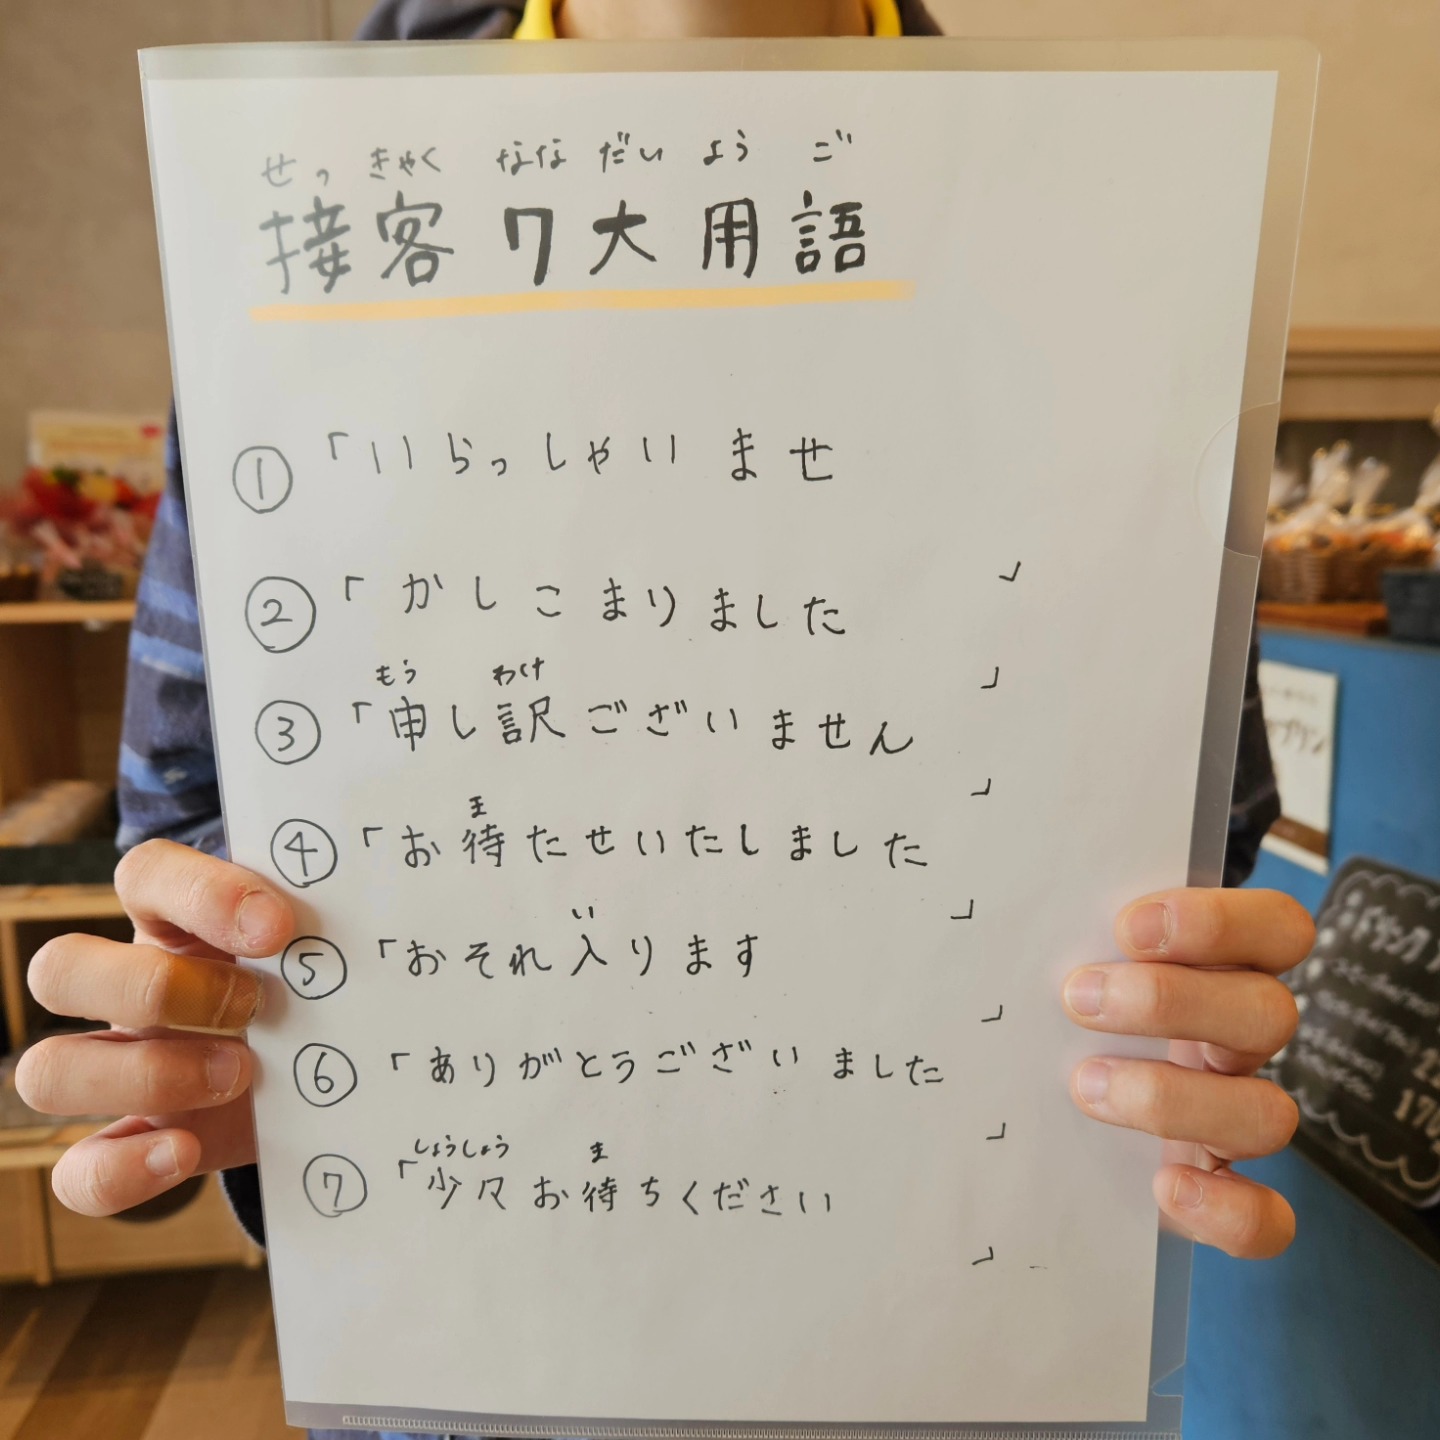 せっきゃくななだいようご
接客7大用語
①「いらっしゃいませ」
②「かしこまりました」
もう わけ
③「申し訳ございません」
ま
④「お待たせいたしました」
い
⑤「おそれ入ります」
⑥「ありがとうございました」
しょうしょう ま
⑦「少々お待ちください」
プリン
ドリンク
170